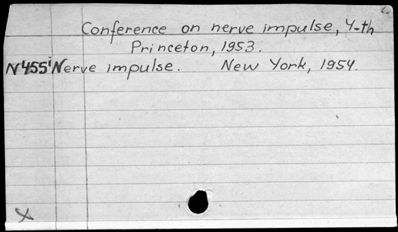 Conference on nerve impulse, 4-th
Princeton, 1953.
N455i Nerve impulse. New York, 1954.
X